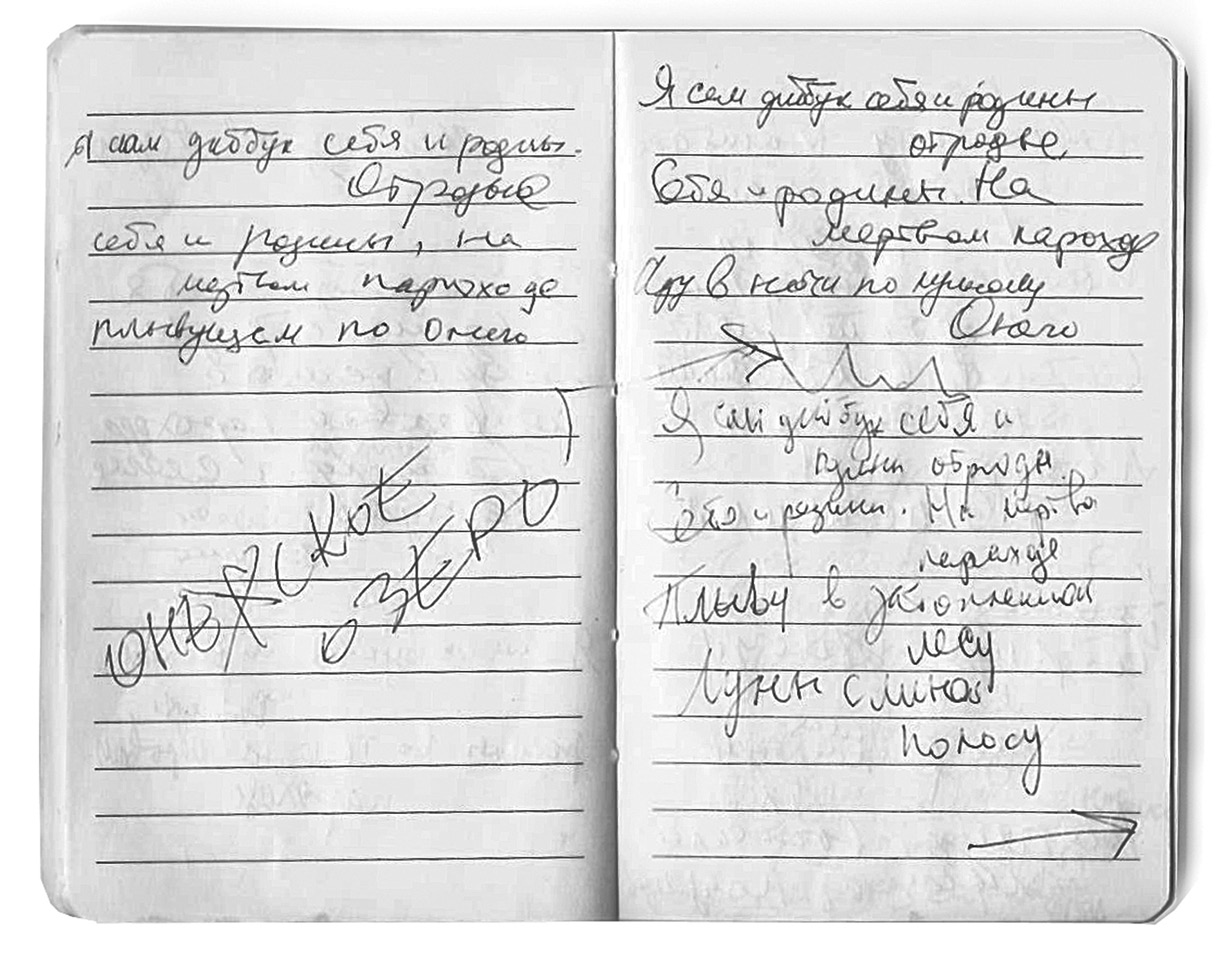 Я сам диббук себя и родины.
Отродье
себя и родины, на
мертвом пароходе
плывущем по Онего
ОНЕЖСКОЕ
ОЗЕРО
Я сам диббук себя и родины
отродье
Себя и родины. На
мертвом пароходе
Иду в ночи по лунному
Онего
Я сам диббук себя и
себя и родины. На мертво
пароходе
Плыву в затопленном
лесу
Луны
полосу